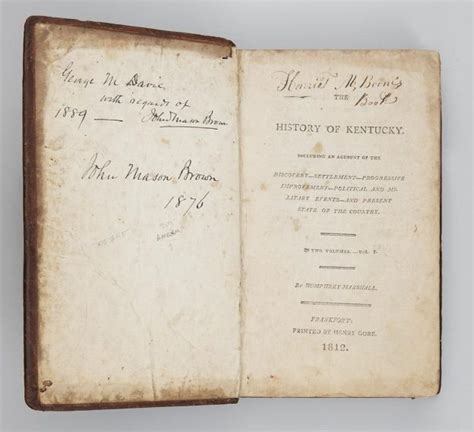 George M. Davie
with regards of
1889 — John Mason Brown
John Mason Brown
1876
Harriet
Book
THE
HISTORY OF KENTUCKY.
INCLUDING AN ACCOUNT OF THE
DISCOVERY—SETTLEMENT—PROGRESSIVE
IMPROVEMENT—POLITICAL AND MI-
LITARY EVENTS—AND PRESENT
STATE OF THE COUNTRY.
IN TWO VOLUMES.—VOL. I.
By HUMPHREY MARSHALL.
FRANKFORT:
PRINTED BY HENRY GORE.
1812.